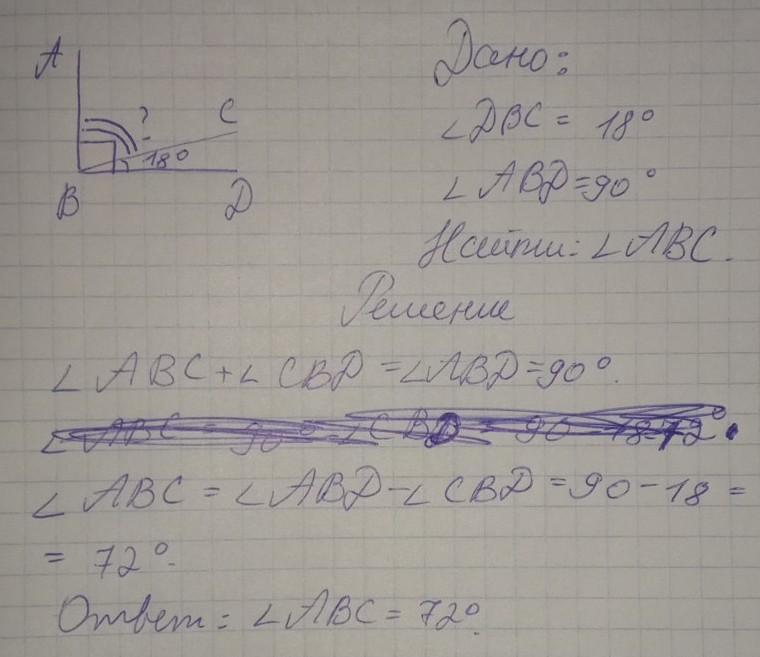 A
? C
18°
B D
Дано:
∠DBC = 18°
∠ABD=90°
Найти: ∠ABC.
Решение
∠ABC+∠CBD=∠ABD=90°.
∠ABC = 90°-∠CBD = 90-18=72°.
∠ABC=∠ABD-∠CBD=90-18=
= 72°.
Ответ: ∠ABC=72°.